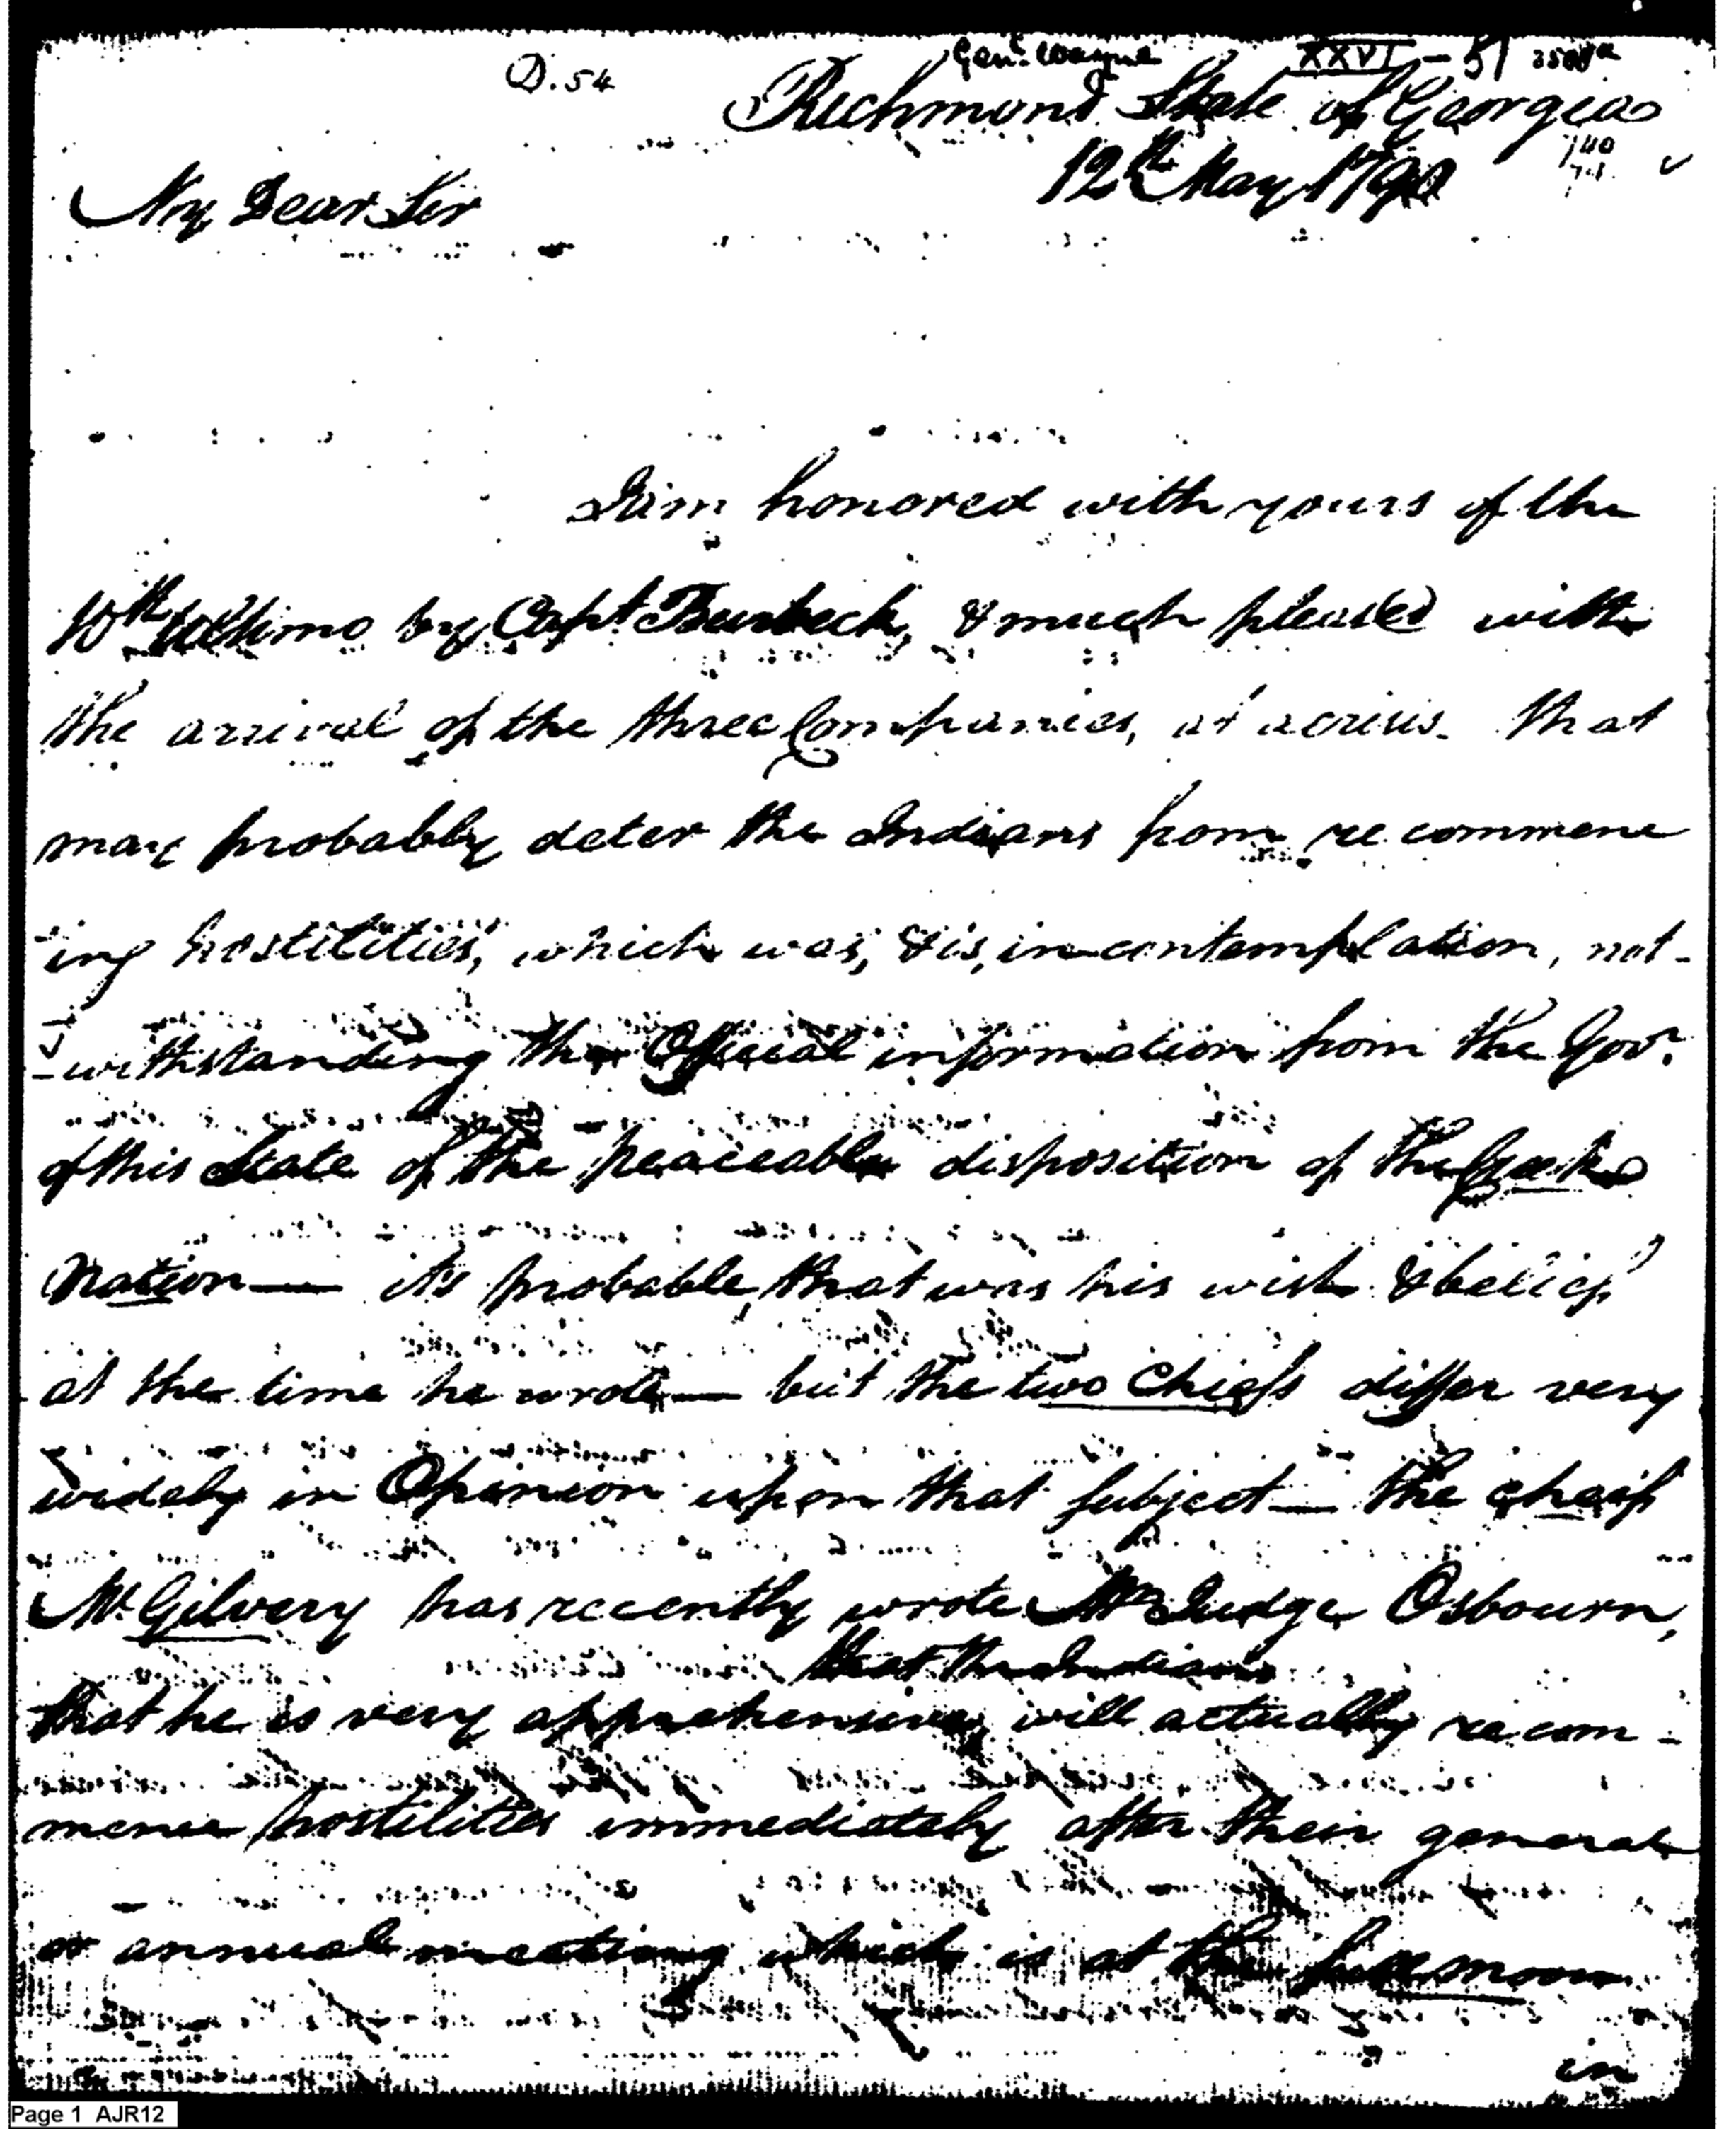 D. 54
Genl. Wayne XXVI - 51
Richmond State of Georgia
12th May 1790
My Dear Sir
I am honored with yours of the
10th Ultimo by Capt. Burbeck, & much pleased with
the arrival of the three Companies, at a crisis that
may probably deter the Indians from re commenc
-ing hostilities, which was, & is, in contemplation, not-
-withstanding the Official information from the Govr.
of this State of the peaceable disposition of the Creek
Nation— its probable, that was his wish & belief
at the time he wrote— but the two Chiefs differ very
widely in Opinion upon that subject— the cheif
Mc.Gilvery has recently wrote Mr Judge Osbourn,
that the Indians
that he is very apprehensive, will actually recom-
mence hostilities immediately after their general
or annual meeting which is at the full moon
in
Page 1 AJR12